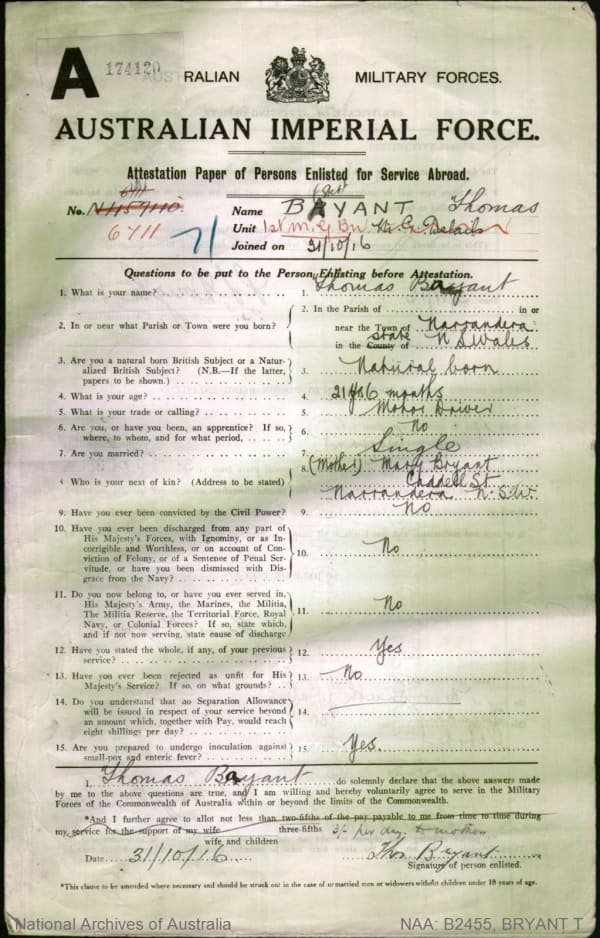 A
174120
AUSTRALIAN MILITARY FORCES.
AUSTRALIAN IMPERIAL FORCE.
Attestation Paper of Persons Enlisted for Service Abroad.
6711
No. 6711 Name BRYANT Thomas
Unit 1st M.G. Bn
Joined on 31/10/16
Questions to be put to the Person Enlisting before Attestation.
1. What is your name? 1. Thomas Bryant
2. In or near what Parish or Town were you born? 2. In the Parish of in or
near the Town of Narrandera
in the County of State N S Wales
3. Are you a natural born British Subject or a Natur-
alized British Subject? (N.B.—If the latter, 3. Natural born
papers to be shown.)
4. What is your age? 4. 21 yrs 6 months
5. What is your trade or calling? 5. Motor Driver
6. Are you, or have you been, an apprentice? If so,
where, to whom, and for what period, 6. No
7. Are you married? 7. Single
8. Who is your next of kin? (Address to be stated) 8. (Mother) Mary Bryant
Chaddell St
Narrandera N.S.W.
9. Have you ever been convicted by the Civil Power? 9. No
10. Have you ever been discharged from any part of
His Majesty's Forces, with Ignominy, or as In-
corrigible and Worthless, or on account of Con-
viction of Felony, or of a Sentence of Penal Ser- 10. No
vitude, or have you been dismissed with Dis-
grace from the Navy?
11. Do you now belong to, or have you ever served in,
His Majesty's Army, the Marines, the Militia,
The Militia Reserve, the Territorial Force, Royal 11. No
Navy, or Colonial Forces? If so, state which,
and if not now serving, state cause of discharge
12. Have you stated the whole, if any, of your previous
service? 12. Yes
13. Have you ever been rejected as unfit for His
Majesty's Service? If so, on what grounds? 13. No
14. Do you understand that no Separation Allowance
will be issued in respect of your service beyond
an amount which, together with Pay, would reach 14.
eight shillings per day?
15. Are you prepared to undergo inoculation against
small-pox and enteric fever? 15. Yes.
I, Thomas Bryant do solemnly declare that the above answers made
by me to the above questions are true, and I am willing and hereby voluntarily agree to serve in the Military
Forces of the Commonwealth of Australia within or beyond the limits of the Commonwealth.
*And I further agree to allot not less than two-fifths of the pay payable to me from time to time during
my service for the support of my wife three-fifths 3/- per day to mother
wife and children
Date 31/10/16 Thos Bryant
Signature of person enlisted.
*This clause to be amended where necessary and should be struck out in the case of unmarried men or widowers without children under 18 years of age.
National Archives of Australia NAA: B2455, BRYANT T